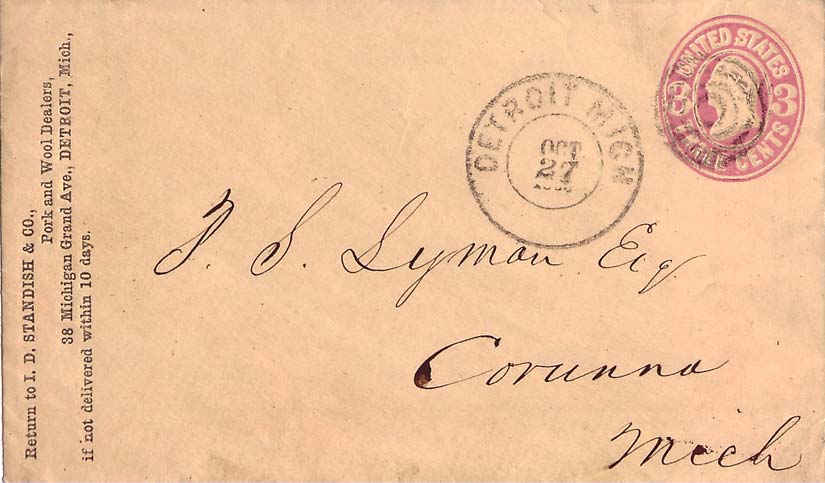 Return to I. D. STANDISH & CO.,
Pork and Wool Dealers,
38 Michigan Grand Ave., DETROIT, Mich.,
if not delivered within 10 days.
DETROIT MICH
OCT
27
UNITED STATES
3 3
THREE CENTS
S. Lyman Esq
Corunna
Mich